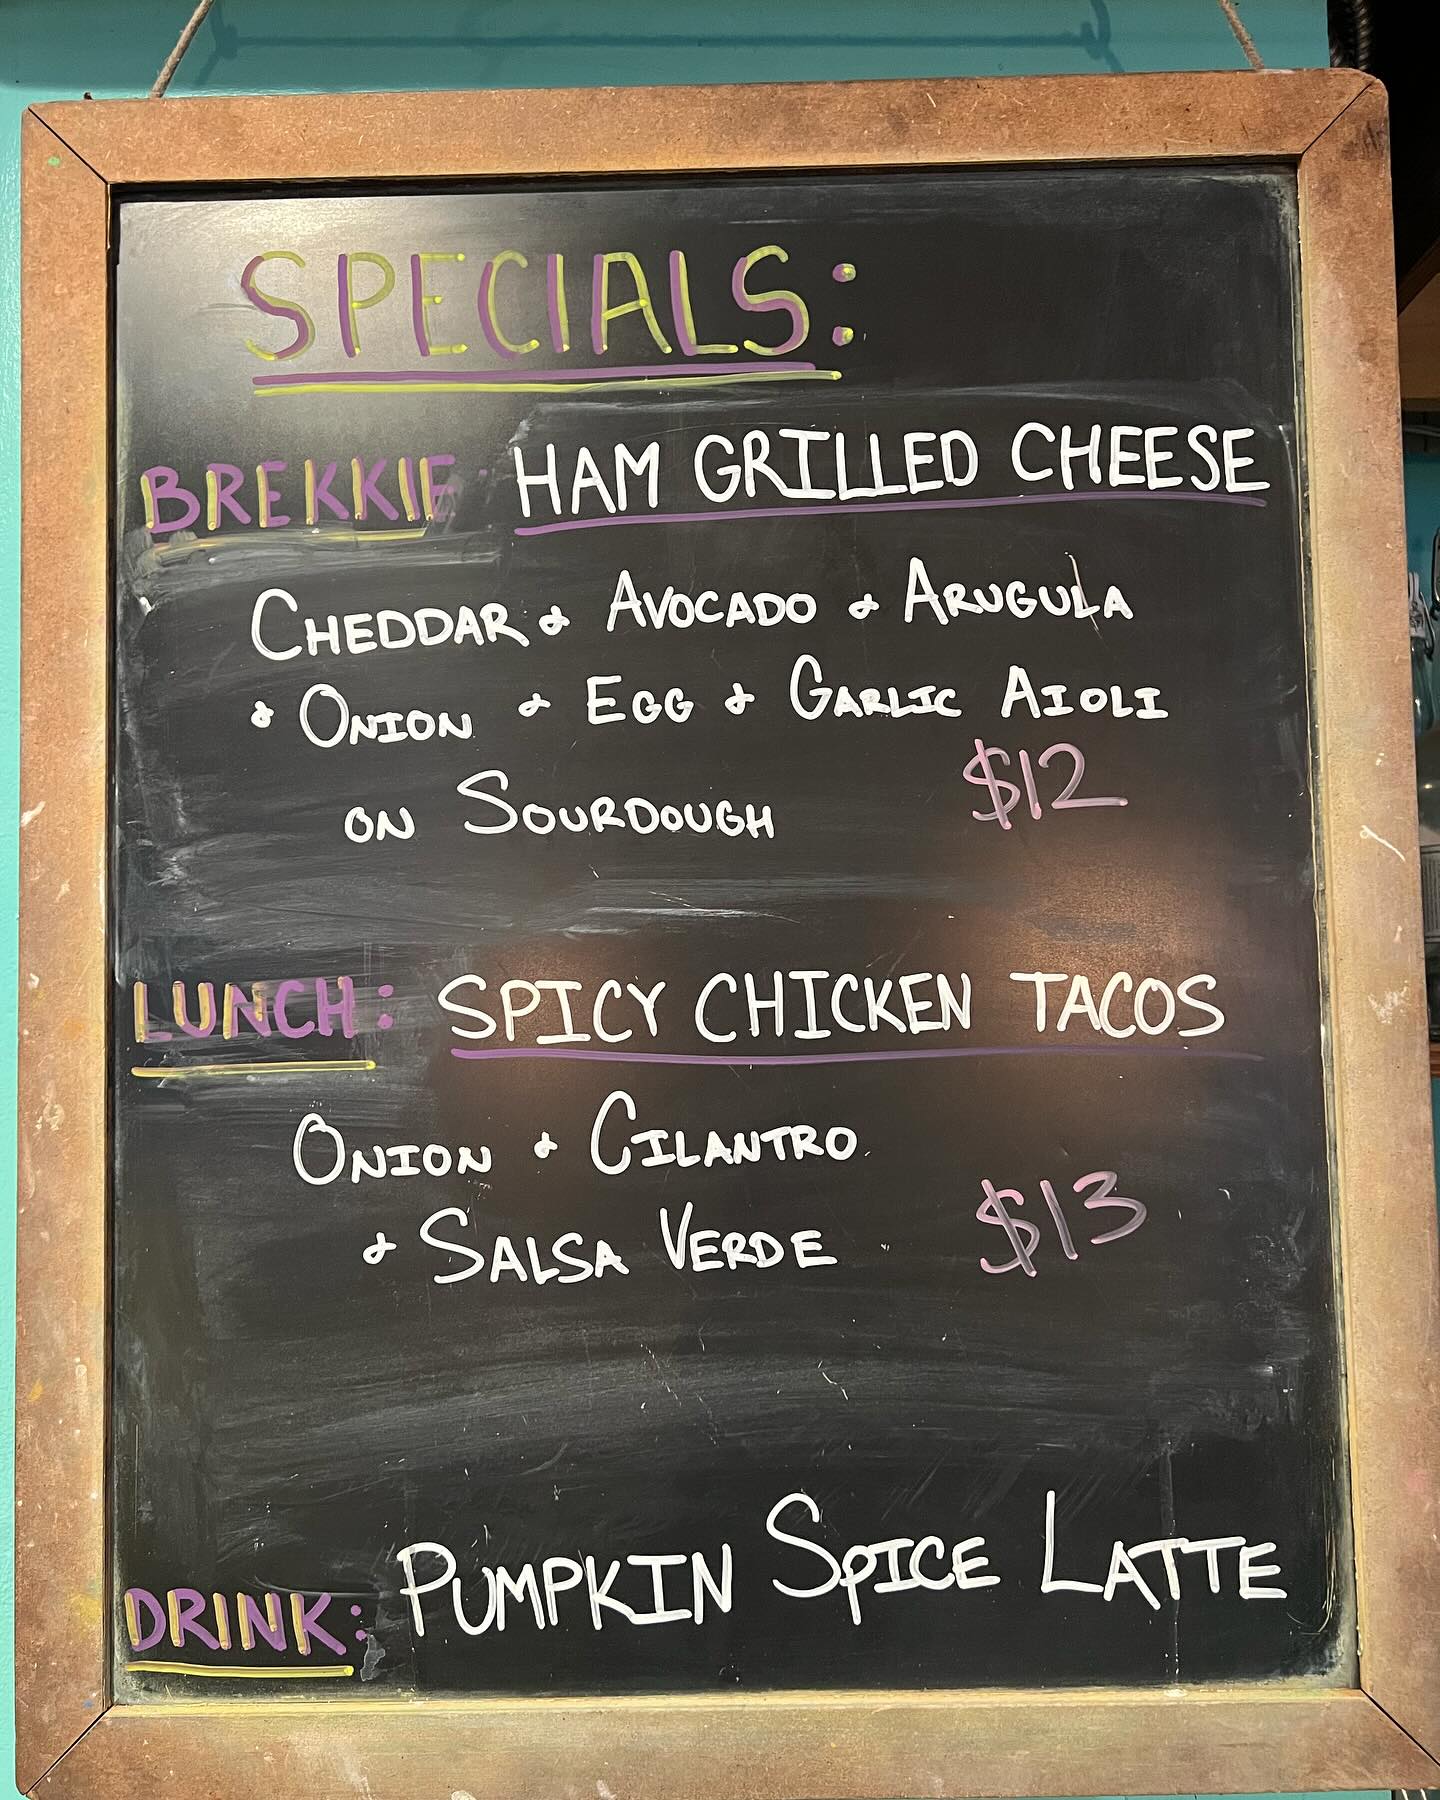 SPECIALS:
BREKKIE: HAM GRILLED CHEESE
CHEDDAR & AVOCADO & ARUGULA
& ONION & EGG & GARLIC AIOLI
ON SOURDOUGH $12
LUNCH: SPICY CHICKEN TACOS
ONION & CILANTRO
& SALSA VERDE $13
DRINK: PUMPKIN SPICE LATTE